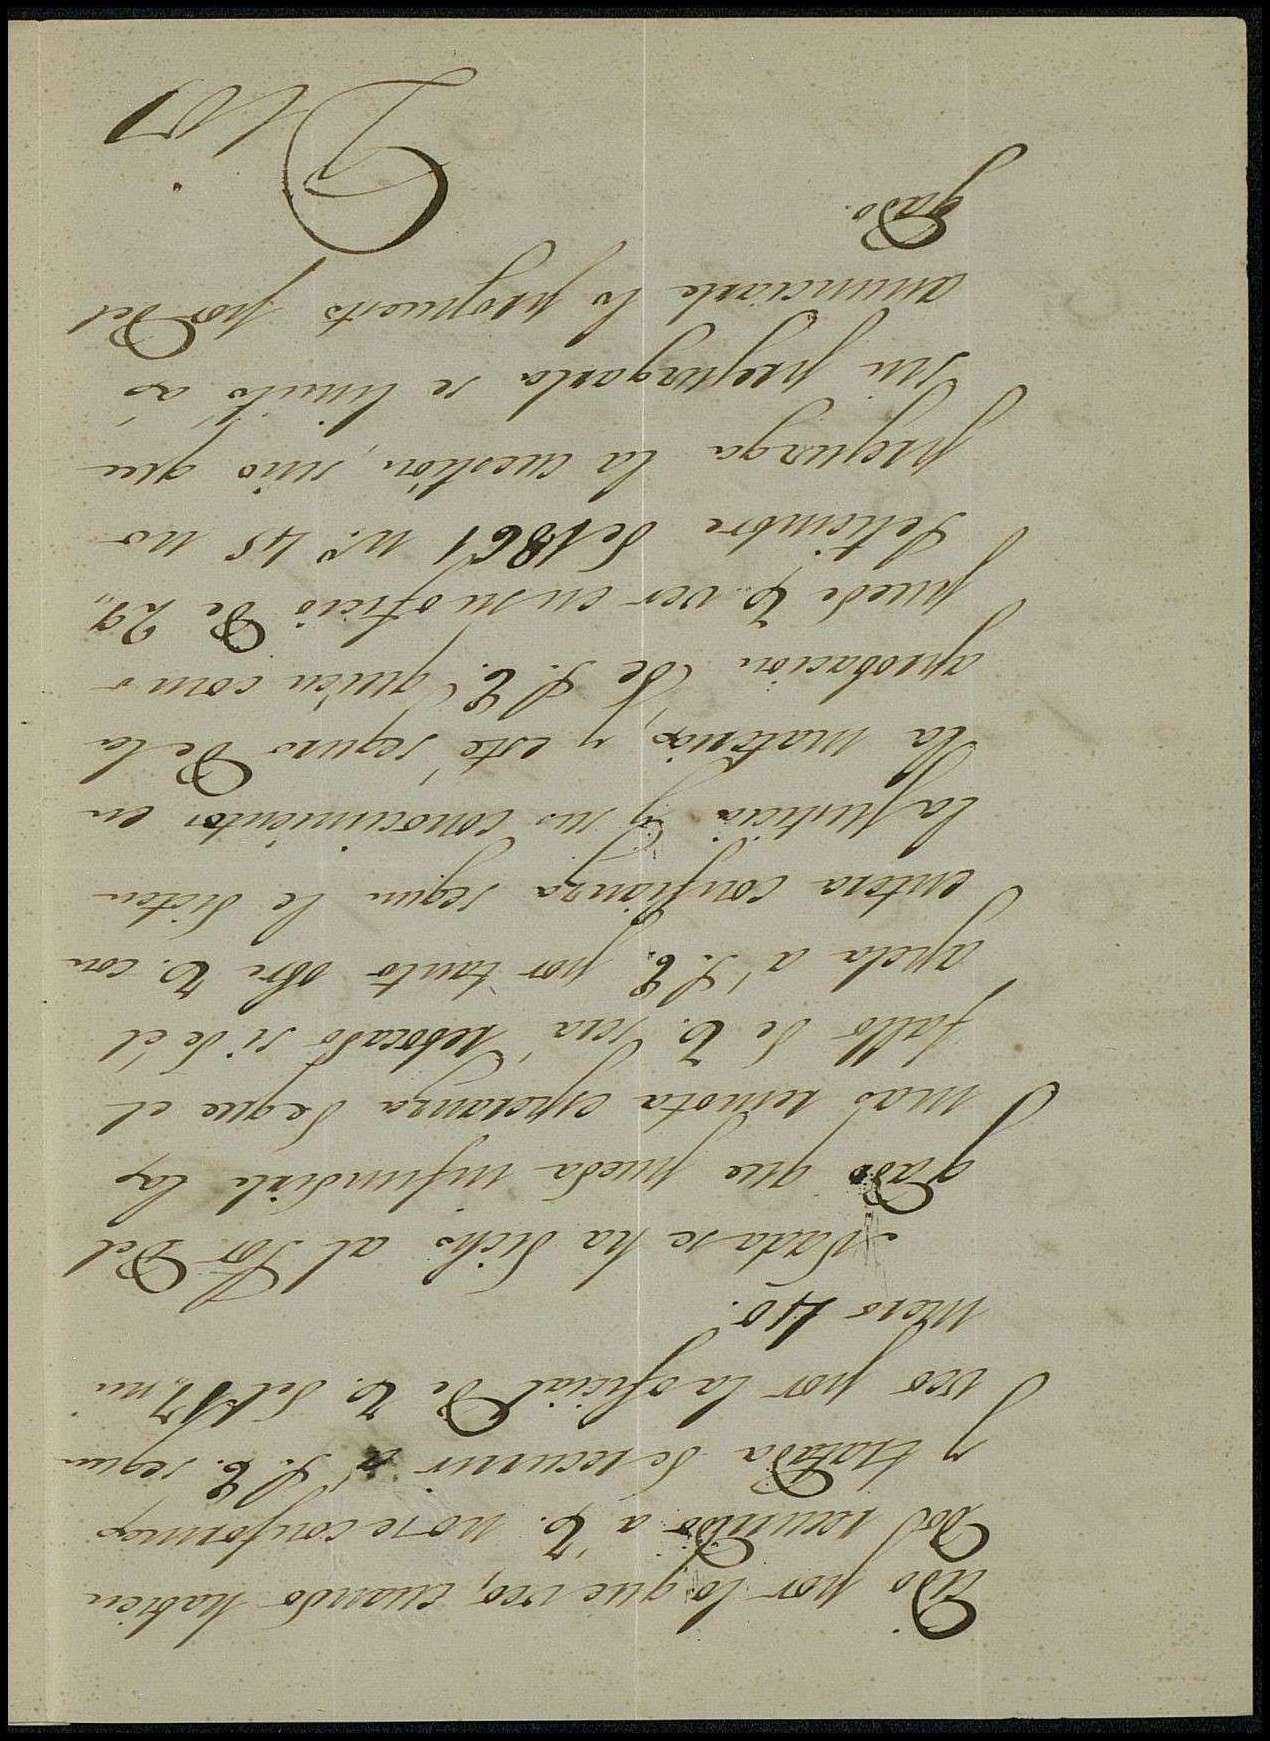 tido por lo que veo, cuando habien
do recurrido á V. no se conforma
y tratada de recurrir á S. E. segun
veo por la oficial de V. del 17, nu
mero 40.
Nada se ha dicho al Sor. Del
gado que pueda infundirle la
mas remota esperanza de que el
fallo de V. será rebocado si de él
apela á S. E. por tanto obre V. con
entera confianza segun le dicten
la justicia y sus conocimientos en
la materia, y esté seguro de la
aprobacion de S. E. quien como
puede V. ver en su oficio de 27,,
Setiembre de 1861 nº. 45 no
prejuzga la cuestion, sino que
sin prejuzgarla se limitó á
anunciarle lo propuesto por Del
gado.
Dios